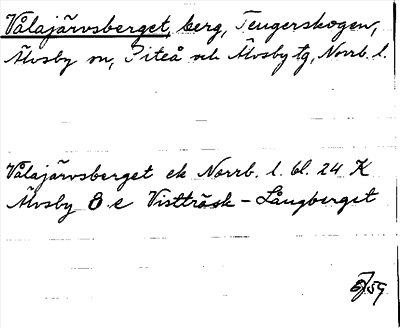 Vålajärvsberget, berg, Teugerskogen,
Älvsby sn, Piteå och Älvsby tg, Norrb. l.
Vålajärvsberget ek Norrb. l. bl. 24 K
Älvsby 8 e Vistträsk - Långberget
59